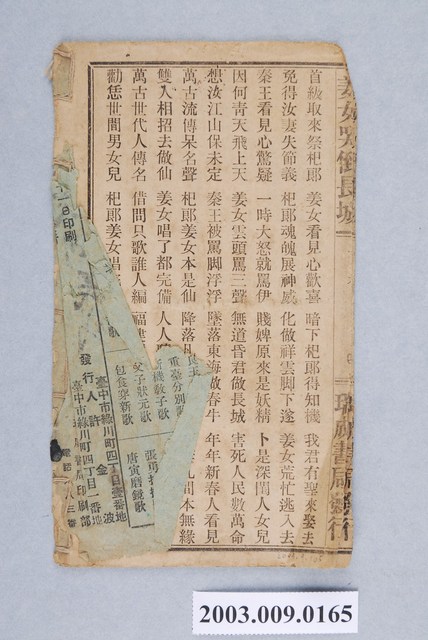 姜女哭倒長城
瑞成書局發行
首級取來祭杞郎 姜女看見心歡喜 暗下杞郎得知機 我君有聖來娶去
免得汝妻失節義 杞郎魂魄展神威 化做祥雲脚下遂 姜女荒忙逃入去
秦王看見心驚疑 一時大怒就罵伊 賤婢原來是妖精 卜是深閨人女兒
因何青天飛上天 姜女雲頭罵三聲 無道昏君做長城 害死人民數萬命
想汝江山保未定 秦王被罵脚浮浮 墜落東海做春牛 年年新春人看見
萬古流傳呆名聲 杞郎姜女本是仙 降落凡 間本無緣
雙入相招去做仙 姜女唱了都完備 人人
萬古世代人傳名 借問只歌誰人編 福建
勸恁世間男女兒 杞郎姜女唱
重臺分別歌
機教子歌
父子狀元歌
包食穿新歌
唐寅磨鏡歌
日印刷
臺中市綠川町四丁目壹番地
發行人 許金波
臺中市綠川町四丁目一番地
印刷部